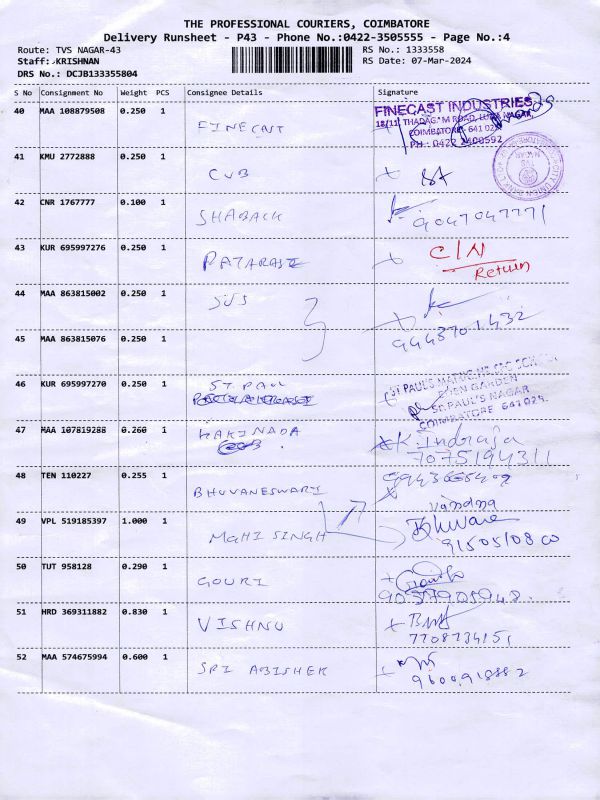 THE PROFESSIONAL COURIERS, COIMBATORE
Delivery Runsheet - P43 - Phone No.:0422-3505555 - Page No.:4
Route: TVS NAGAR-43 RS No.: 1333558
Staff: KRISHNAN RS Date: 07-Mar-2024
DRS No.: DCJB133355804
S No Consignment No Weight PCS Consignee Details Signature
40 MAA 108879508 0.250 1 FINECAST
FINECAST INDUSTRIES
18/11, THADAGAM ROAD, NAGAR,
COIMBATORE - 641 025
PH : 0422 2400592
41 KMU 2772888 0.250 1 CUB
TVS
NAGAR
42 CNR 1767777 0.100 1 SHABACK
9047047771
43 KUR 695997276 0.250 1 C/N
Return
44 MAA 863815002 0.250 1 SUS
9443701432
45 MAA 863815076 0.250 1
46 KUR 695997270 0.250 1 ST. PAUL
ST PAUL'S
EDEN GARDEN
ST. PAUL'S NAGAR
COIMBATORE 641 025.
47 MAA 107819288 0.260 1 KAKINADA K Indraja
7075194311
48 TEN 110227 0.255 1 BHUVANESWARI
49 VPL 519185397 1.000 1 MAHI SINGH
50 TUT 958128 0.290 1 GOURI
51 HRD 369311882 0.830 1 VISHNU
7708734151
52 MAA 574675994 0.600 1 SRI ABISHEK